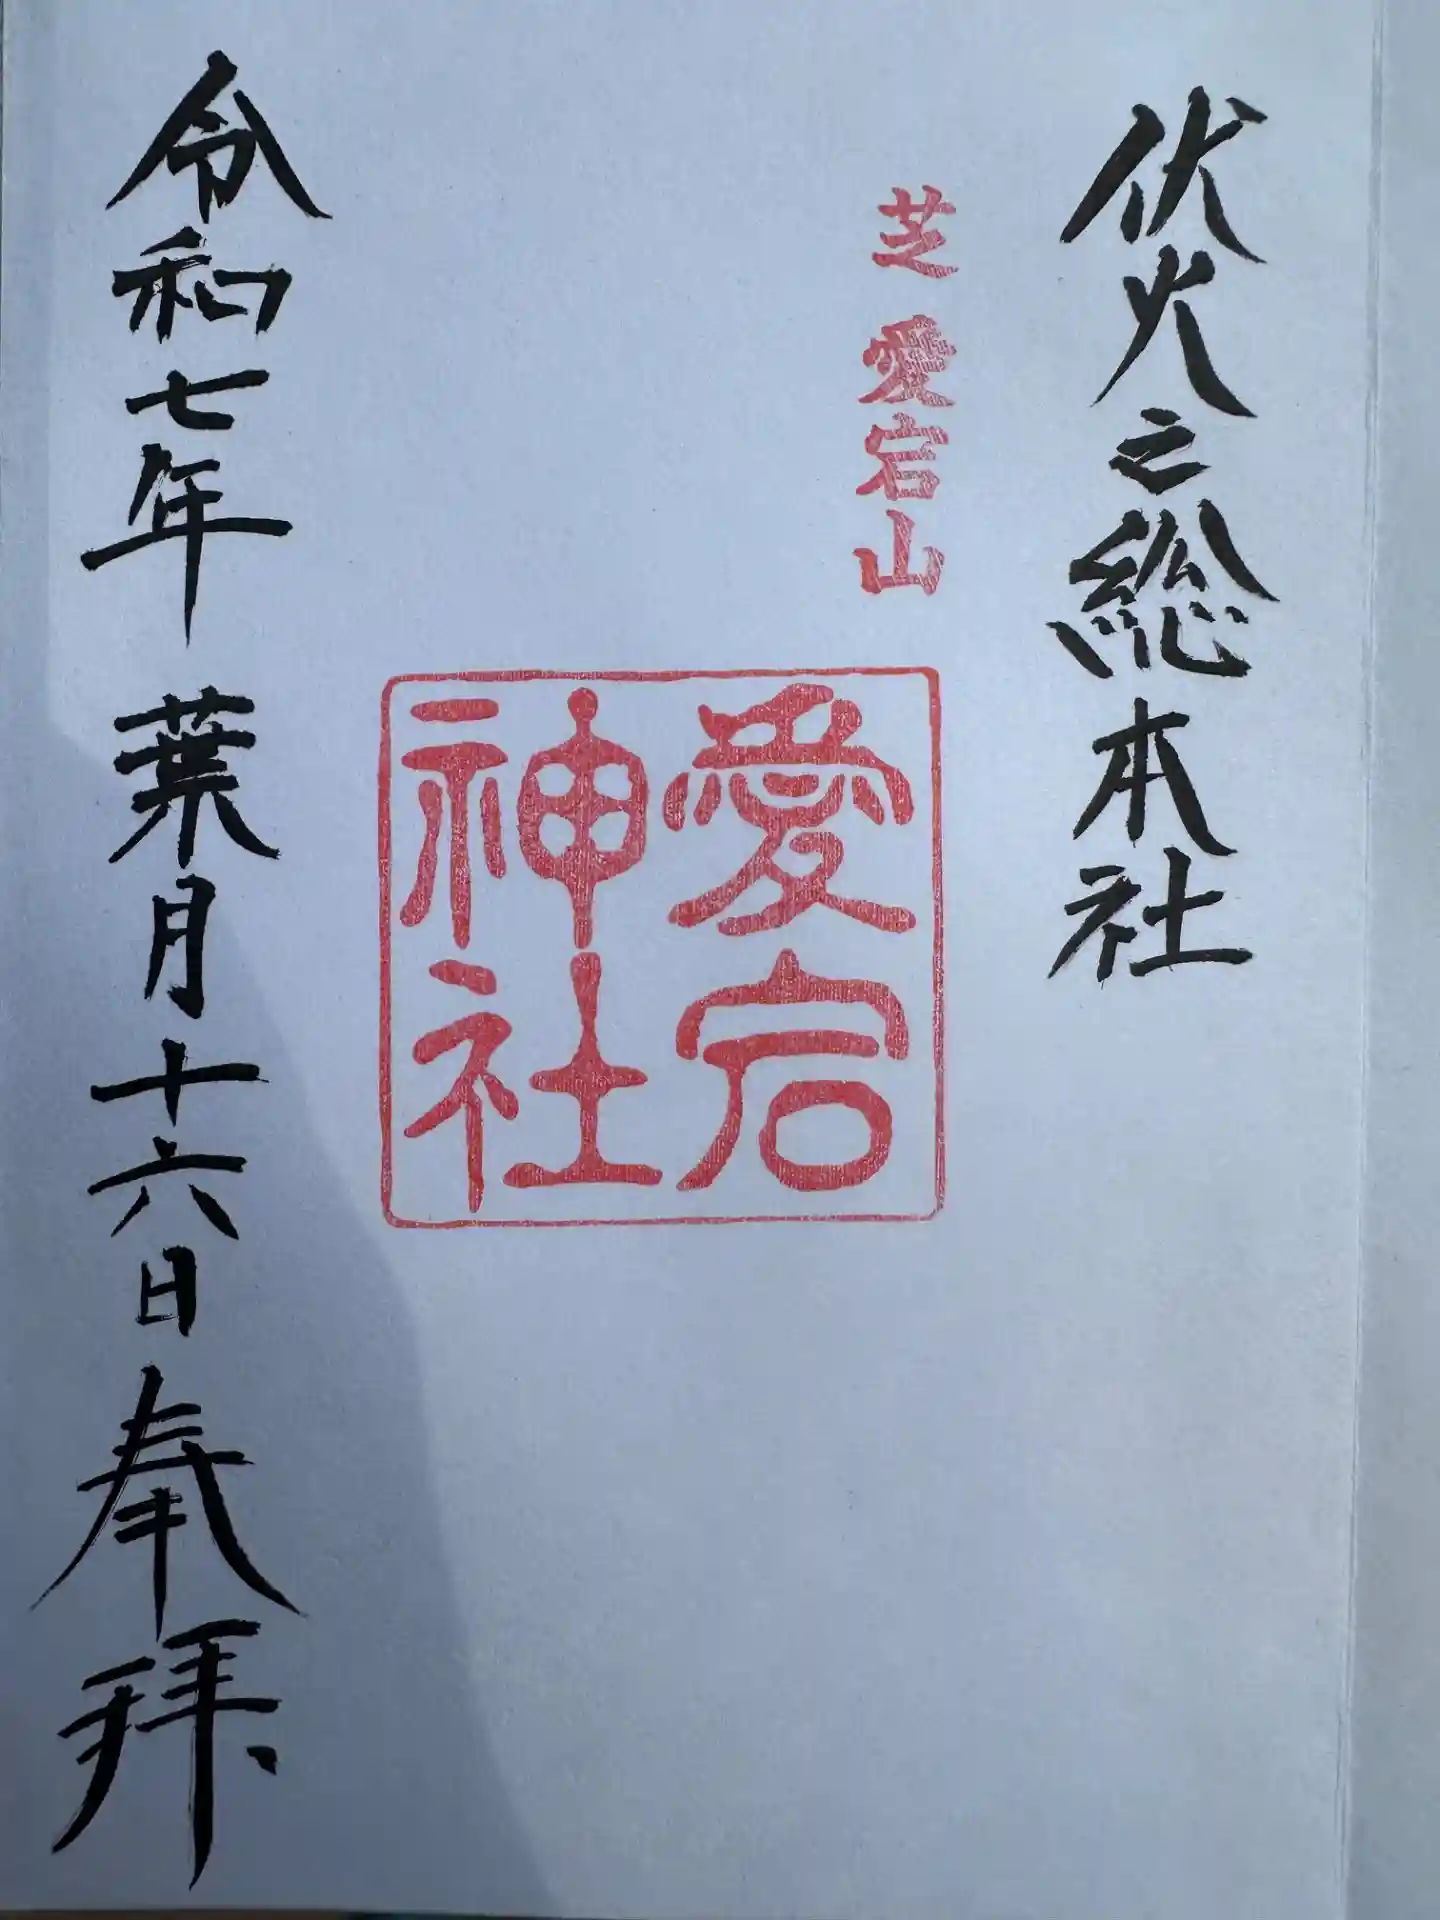 伏火之総本社
芝 愛宕山
愛宕
神社
令和七年 葉月十六日奉拝